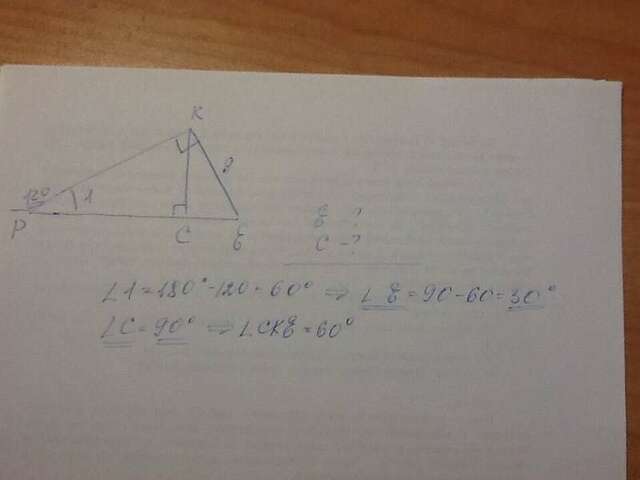 K
120
1
9
P
C
E
E ?
C - ?
∠1 = 180° - 120 = 60° ⇒ ∠E = 90 - 60 = 30°
∠C = 90° ⇒ ∠CKE = 60°